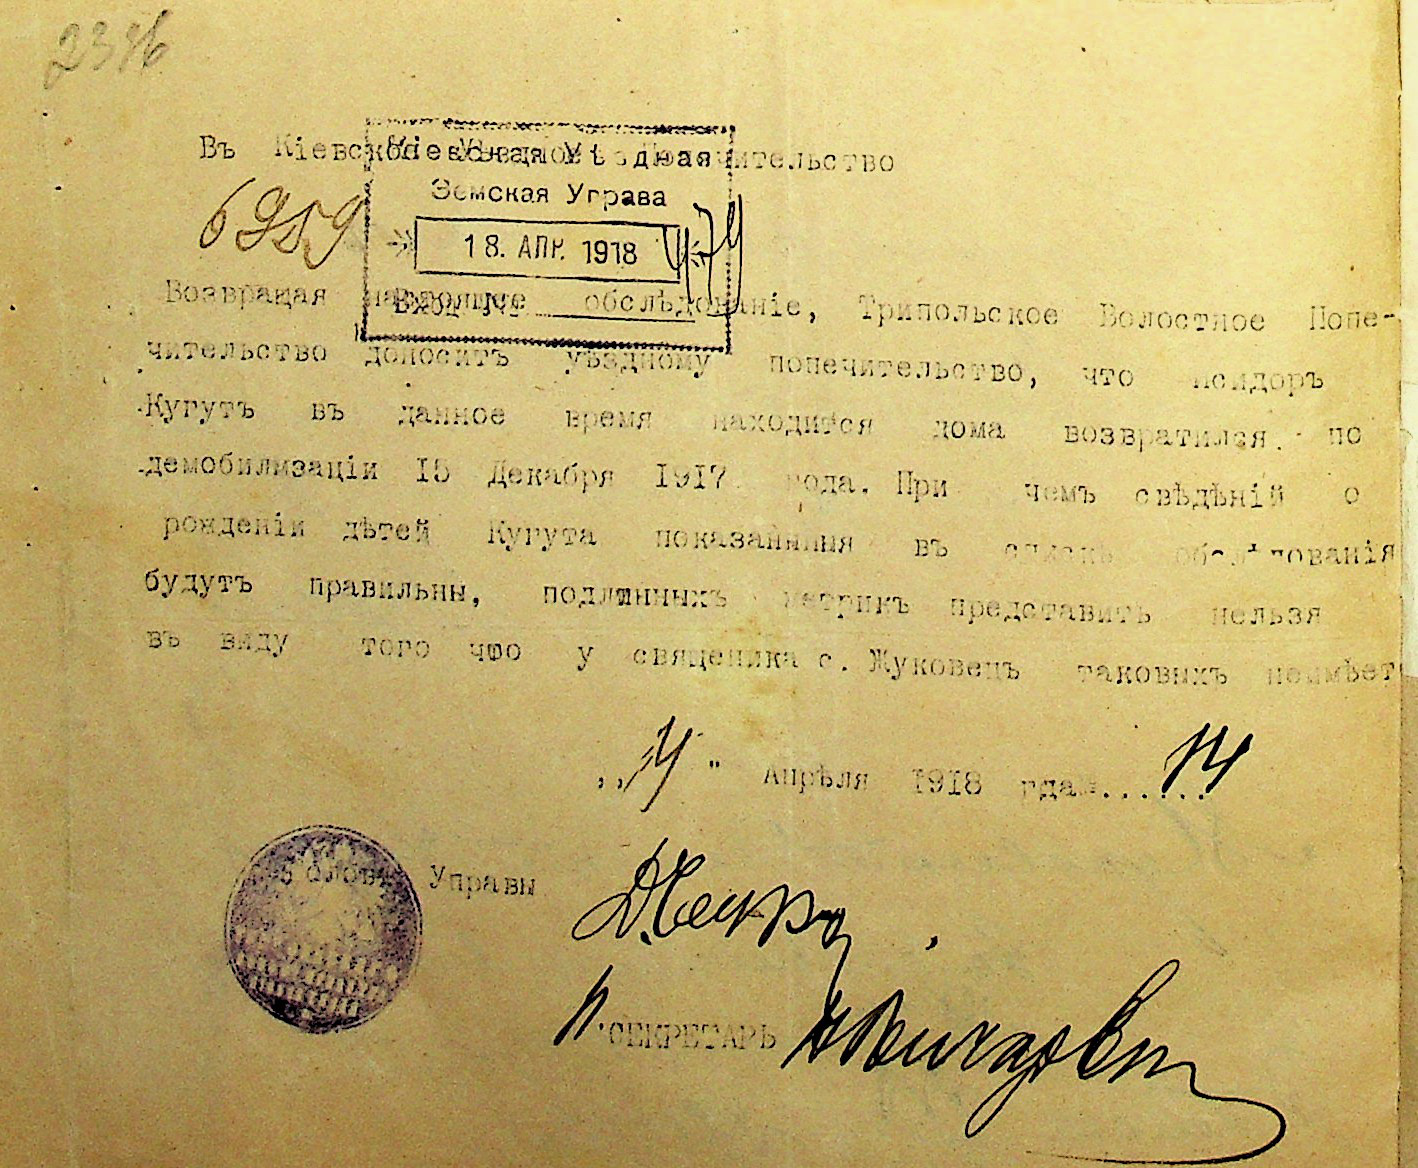 Въ Кіевское Уѣздное Попечительство
Кіевская Уѣздная
Земская Управа
6959
18. АПР. 1918
474
Вход. №
Возвращая обслѣдованіе, Трипольское Волостное Попе-
чительство доноситъ уѣздному попечительство, что Исидоръ
Кугутъ въ данное время находится дома возвратился. по
демобилизаціи 15 Декабря 1917 года. При чемъ свѣдѣній о
рожденіи дѣтей Кугута показанныя въ обслѣдованія
будутъ правильны, подлинныхъ метрикъ представить нельзя
въ виду того что у священика с. Жуковецъ таковыхъ неимѣет
„ 14 " Апрѣля 1918 гдам...... 14
Управы
СЕКРЕТАРЬ